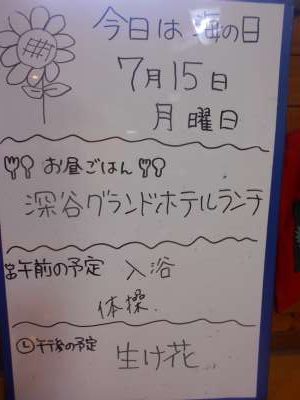 今日は 海の日
7月15日
月曜日
お昼ごはん
深谷グランドホテルランチ
午前の予定 入浴
体操
午後の予定 生け花